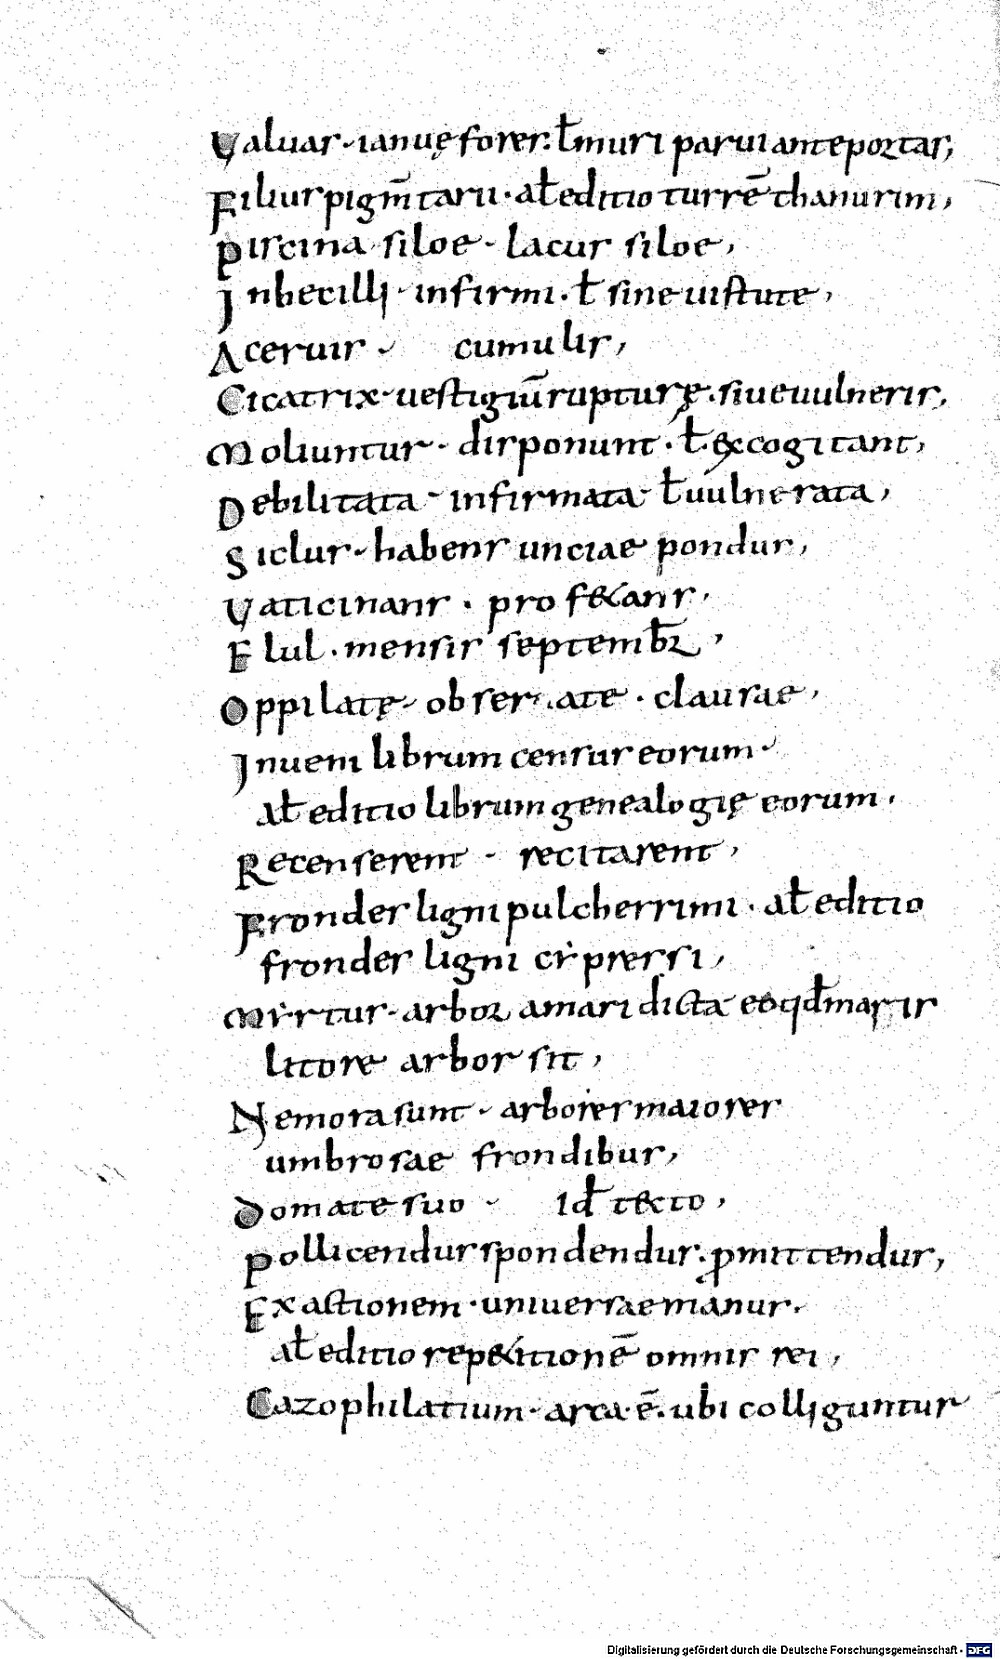 Valuas · ianuę fores · ł muri parui ante portas,
Filius pigm̄tarii · ał editio turrē thanurim,
Piscina siloe · lacus siloe,
Inbecilli · infirmi · ł sine uirtute,
Aceruis · cumulis,
Cicatrix · uestigiū rupturę · siue uulneris,
Moliuntur · disponunt · ł excogitant,
Debilitata · infirmata · ł uulnerata,
Siclus · habens unciae pondus,
Vaticinans · profetans,
Elul · mensis septemb̄r,
Oppilatę · obser ate · clausae,
Inueni librum census eorum ·
ał editio librum genealogię eorum,
Recenserent · recitarent,
Frondes ligni pulcherrimi · ał editio
frondes ligni cẏpressi,
Mẏrtus · arbor amari dicta eo qđ maris
litore arbor sit,
Nemora sunt · arbores maiores
umbrosae frondibus,
Domate suo · iđ tecto,
Pollicendus spondendus · ꝓmittendus,
Exactionem · uniuersae manus ·
ał editio repetitionē omnis rei,
Gazophilatium · arca ē · ubi colliguntur
Digitalisierung gefördert durch die Deutsche Forschungsgemeinschaft - DFG